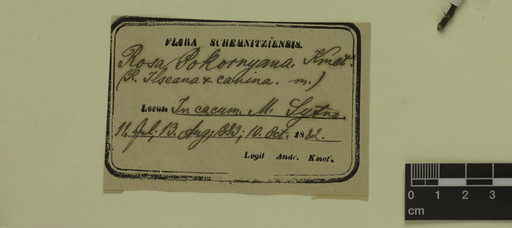 FLORA SCHEMNITZIENSIS.
Rosa Pokornyana Kmet.
(R. Ilseana × canina. m.)
Locus In cacum. M. Sytna.
11. Jul; 13. Aug, 883; 10. Oct. 1882.
Legit Andr. Kmet.
0 1 2 3
cm